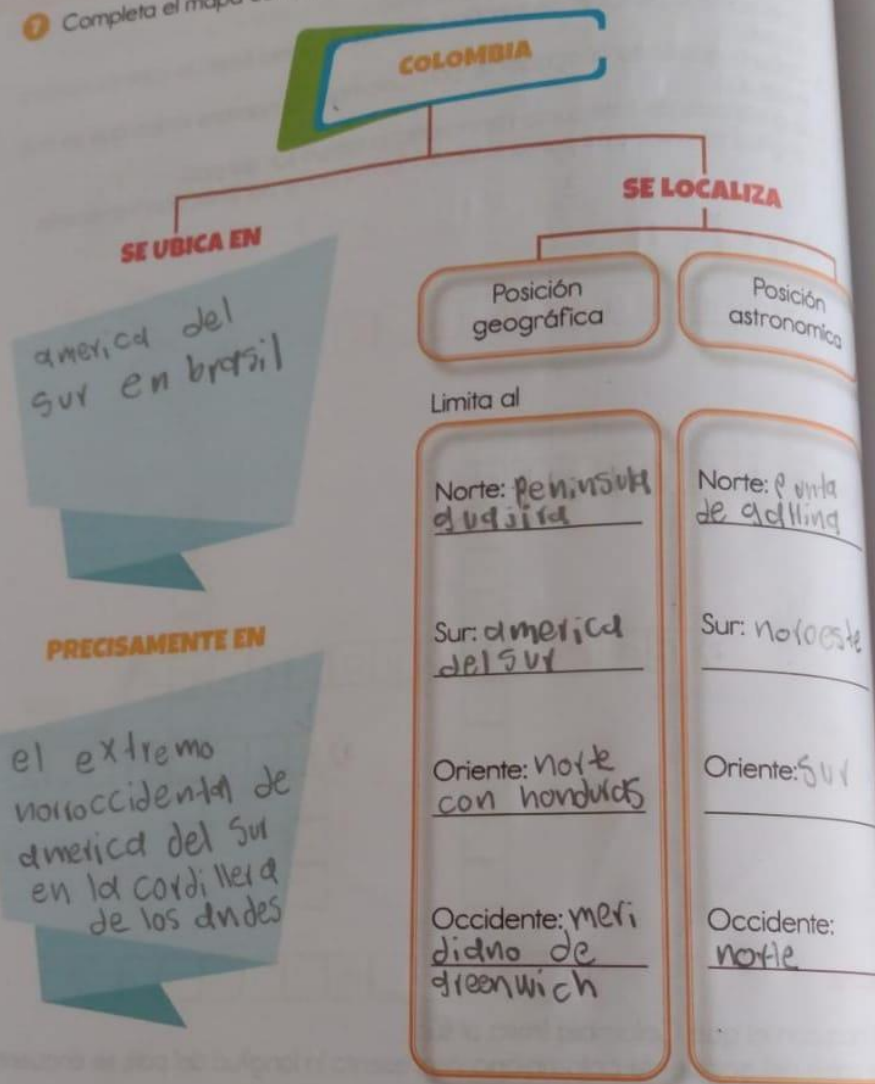 7 Completa el mapa
COLOMBIA
SE UBICA EN
america del
sur en brasil
PRECISAMENTE EN
el extremo
noroccidental de
america del sur
en la cordillera
de los andes
SE LOCALIZA
Posición
geográfica
Limita al
Norte: peninsula
guajira
Sur: america
del sur
Oriente: norte
con honduras
Occidente: meri
diano de
greenwich
Posición
astronomica
Norte: punta
de gallina
Sur: noroeste
Oriente: sur
Occidente:
norte